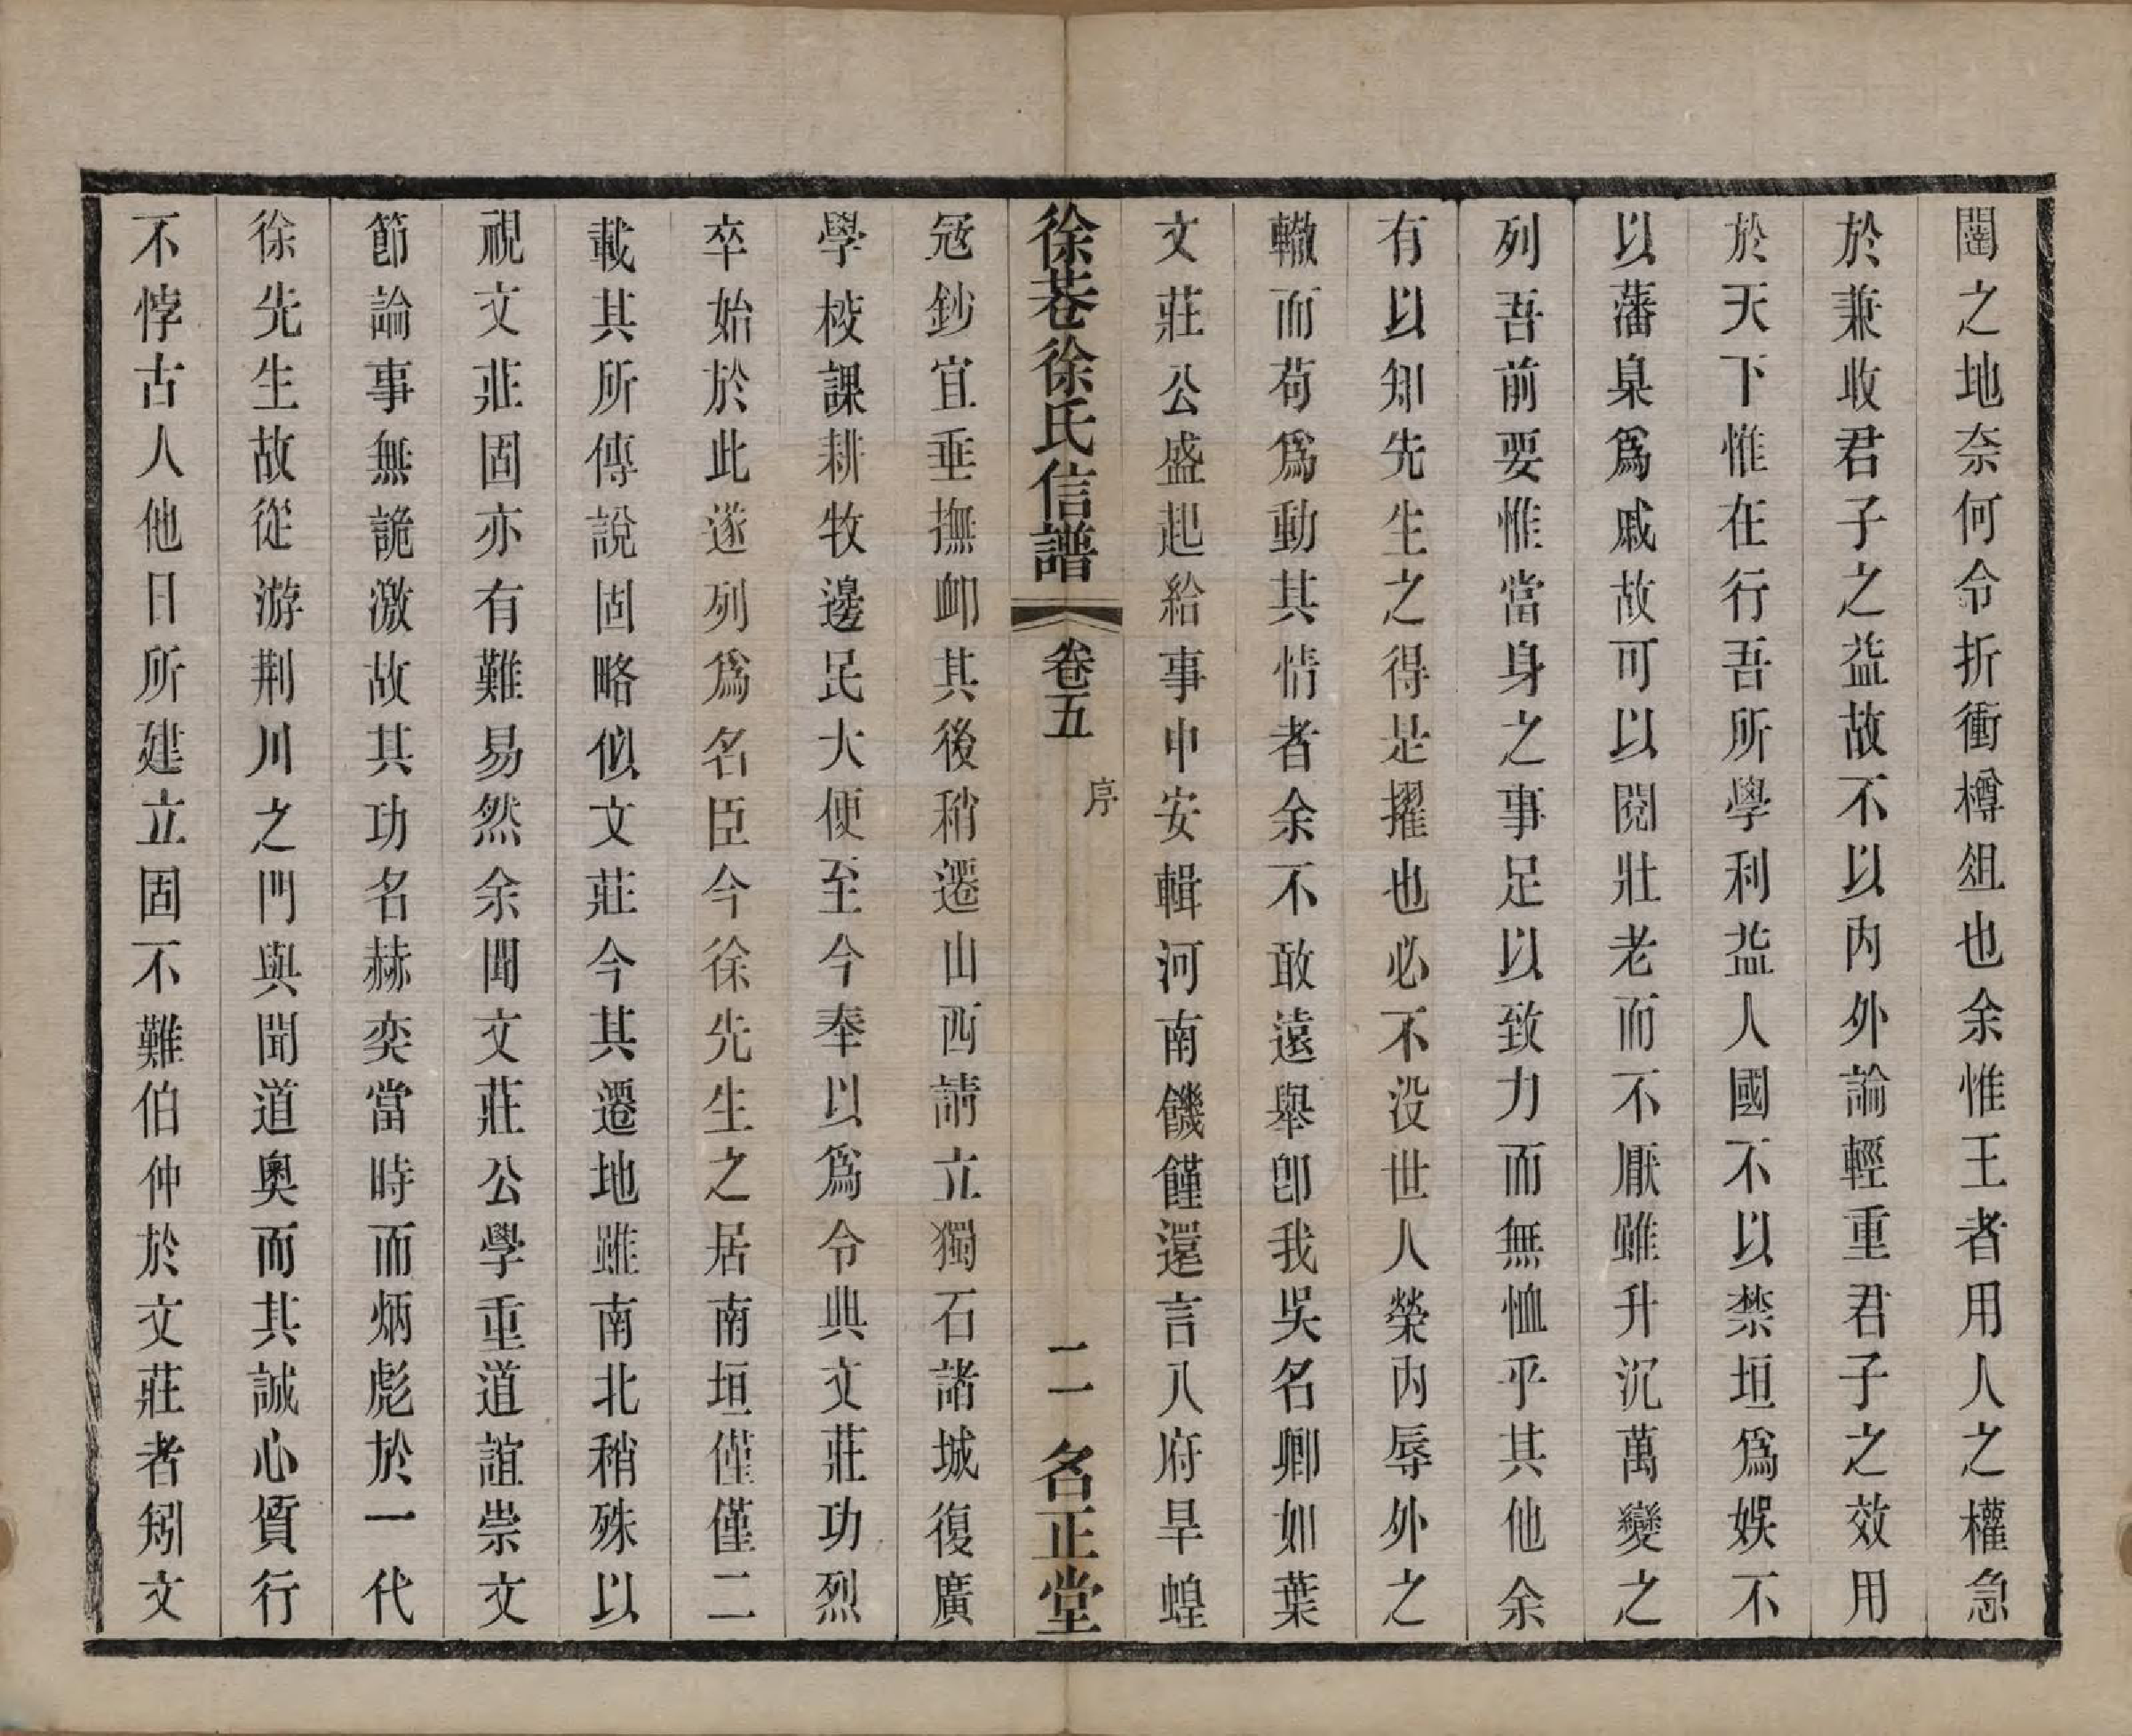 閫之地奈何令折衝樽俎也余惟王者用人之權急
於兼收君子之益故不以內外論輕重君子之效用
於天下惟在行吾所學利益人國不以禁垣爲娛不
以藩臬爲戚故可以閱壯老而不厭雖升沉萬變之
列吾前要惟當身之事足以致力而無恤乎其他余
有以知先生之得是擢也必不没世人榮內辱外之
轍而苟爲動其情者余不敢遠舉卽我吳名卿如葉
文莊公盛起給事中安輯河南饑饉還言八府旱蝗
徐巷徐氏信譜 卷五 序 二 名正堂
冦鈔宜垂撫卹其後稍遷山西請立獨石諸城復廣
學校課耕牧邊民大便至今奉以爲令典文莊功烈
卒始於此遂列爲名臣今徐先生之居南垣僅僅二
載其所傳說固略似文莊今其遷地雖南北稍殊以
視文莊固亦有難易然余聞文莊公學重道誼崇文
節論事無詭激故其功名赫奕當時而炳彪於一代
徐先生故從游荆川之門與聞道奥而其誠心質行
不悖古人他日所建立固不難伯仲於文莊者矧文